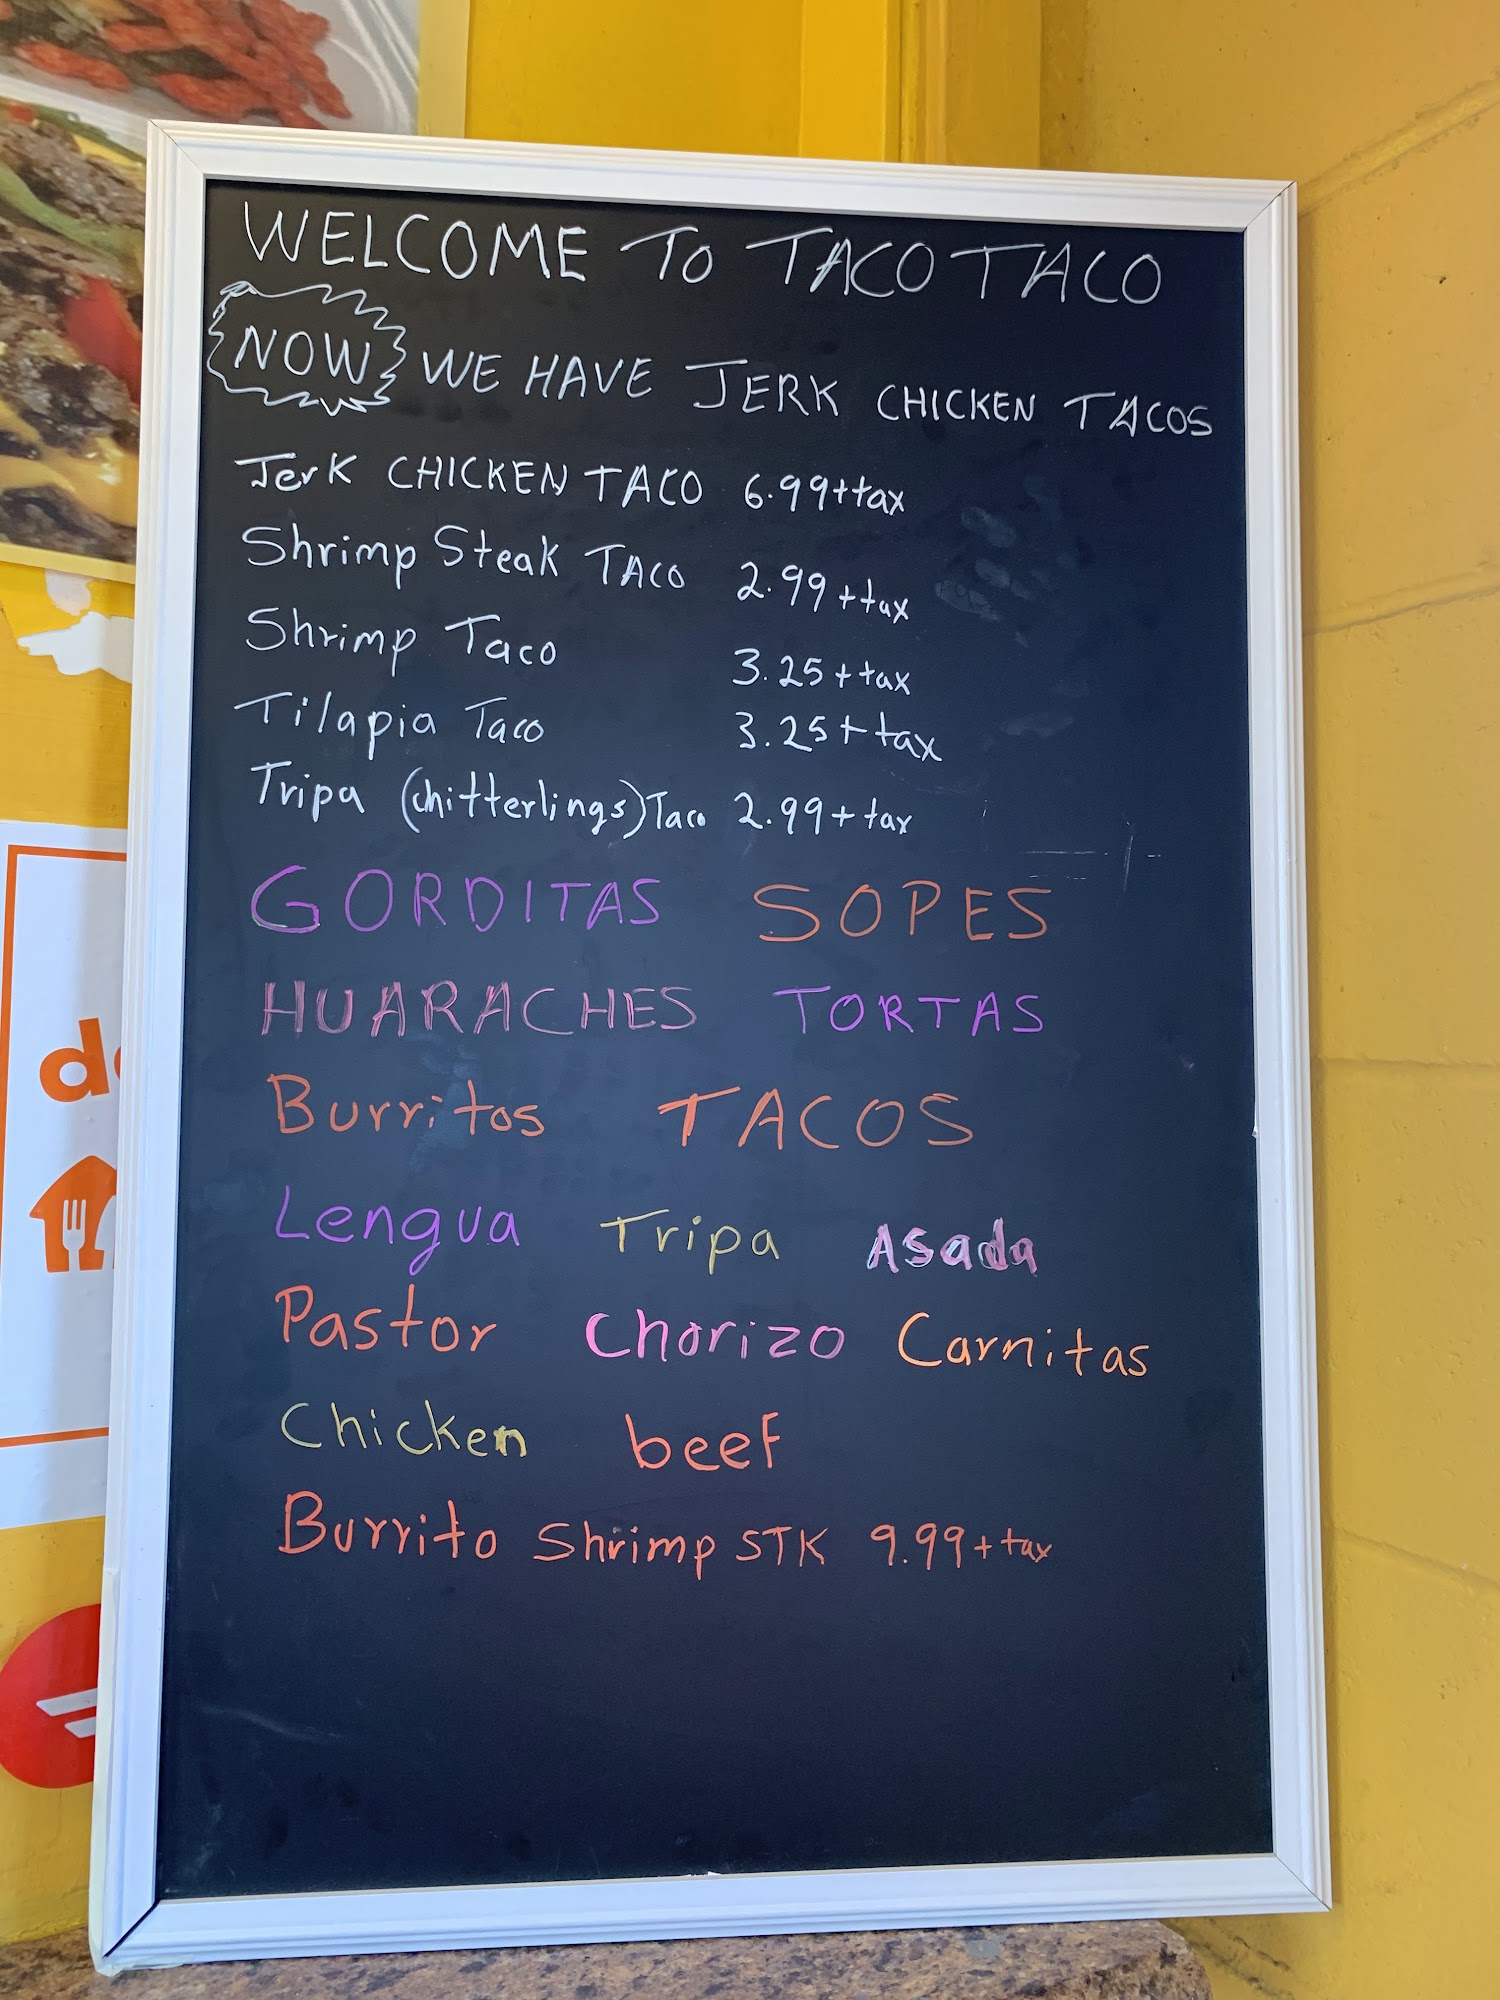 WELCOME TO TACO TACO
NOW WE HAVE JERK CHICKEN TACOS
Jerk CHICKEN TACO 6.99+tax
Shrimp Steak TACO 2.99+tax
Shrimp Taco 3.25+tax
Tilapia Taco 3.25+tax
Tripa (chitterlings) Taco 2.99+tax
GORDITAS SOPES
HUARACHES TORTAS
Burritos TACOS
Lengua Tripa Asada
Pastor Chorizo Carnitas
Chicken beef
Burrito Shrimp STK 9.99+tax